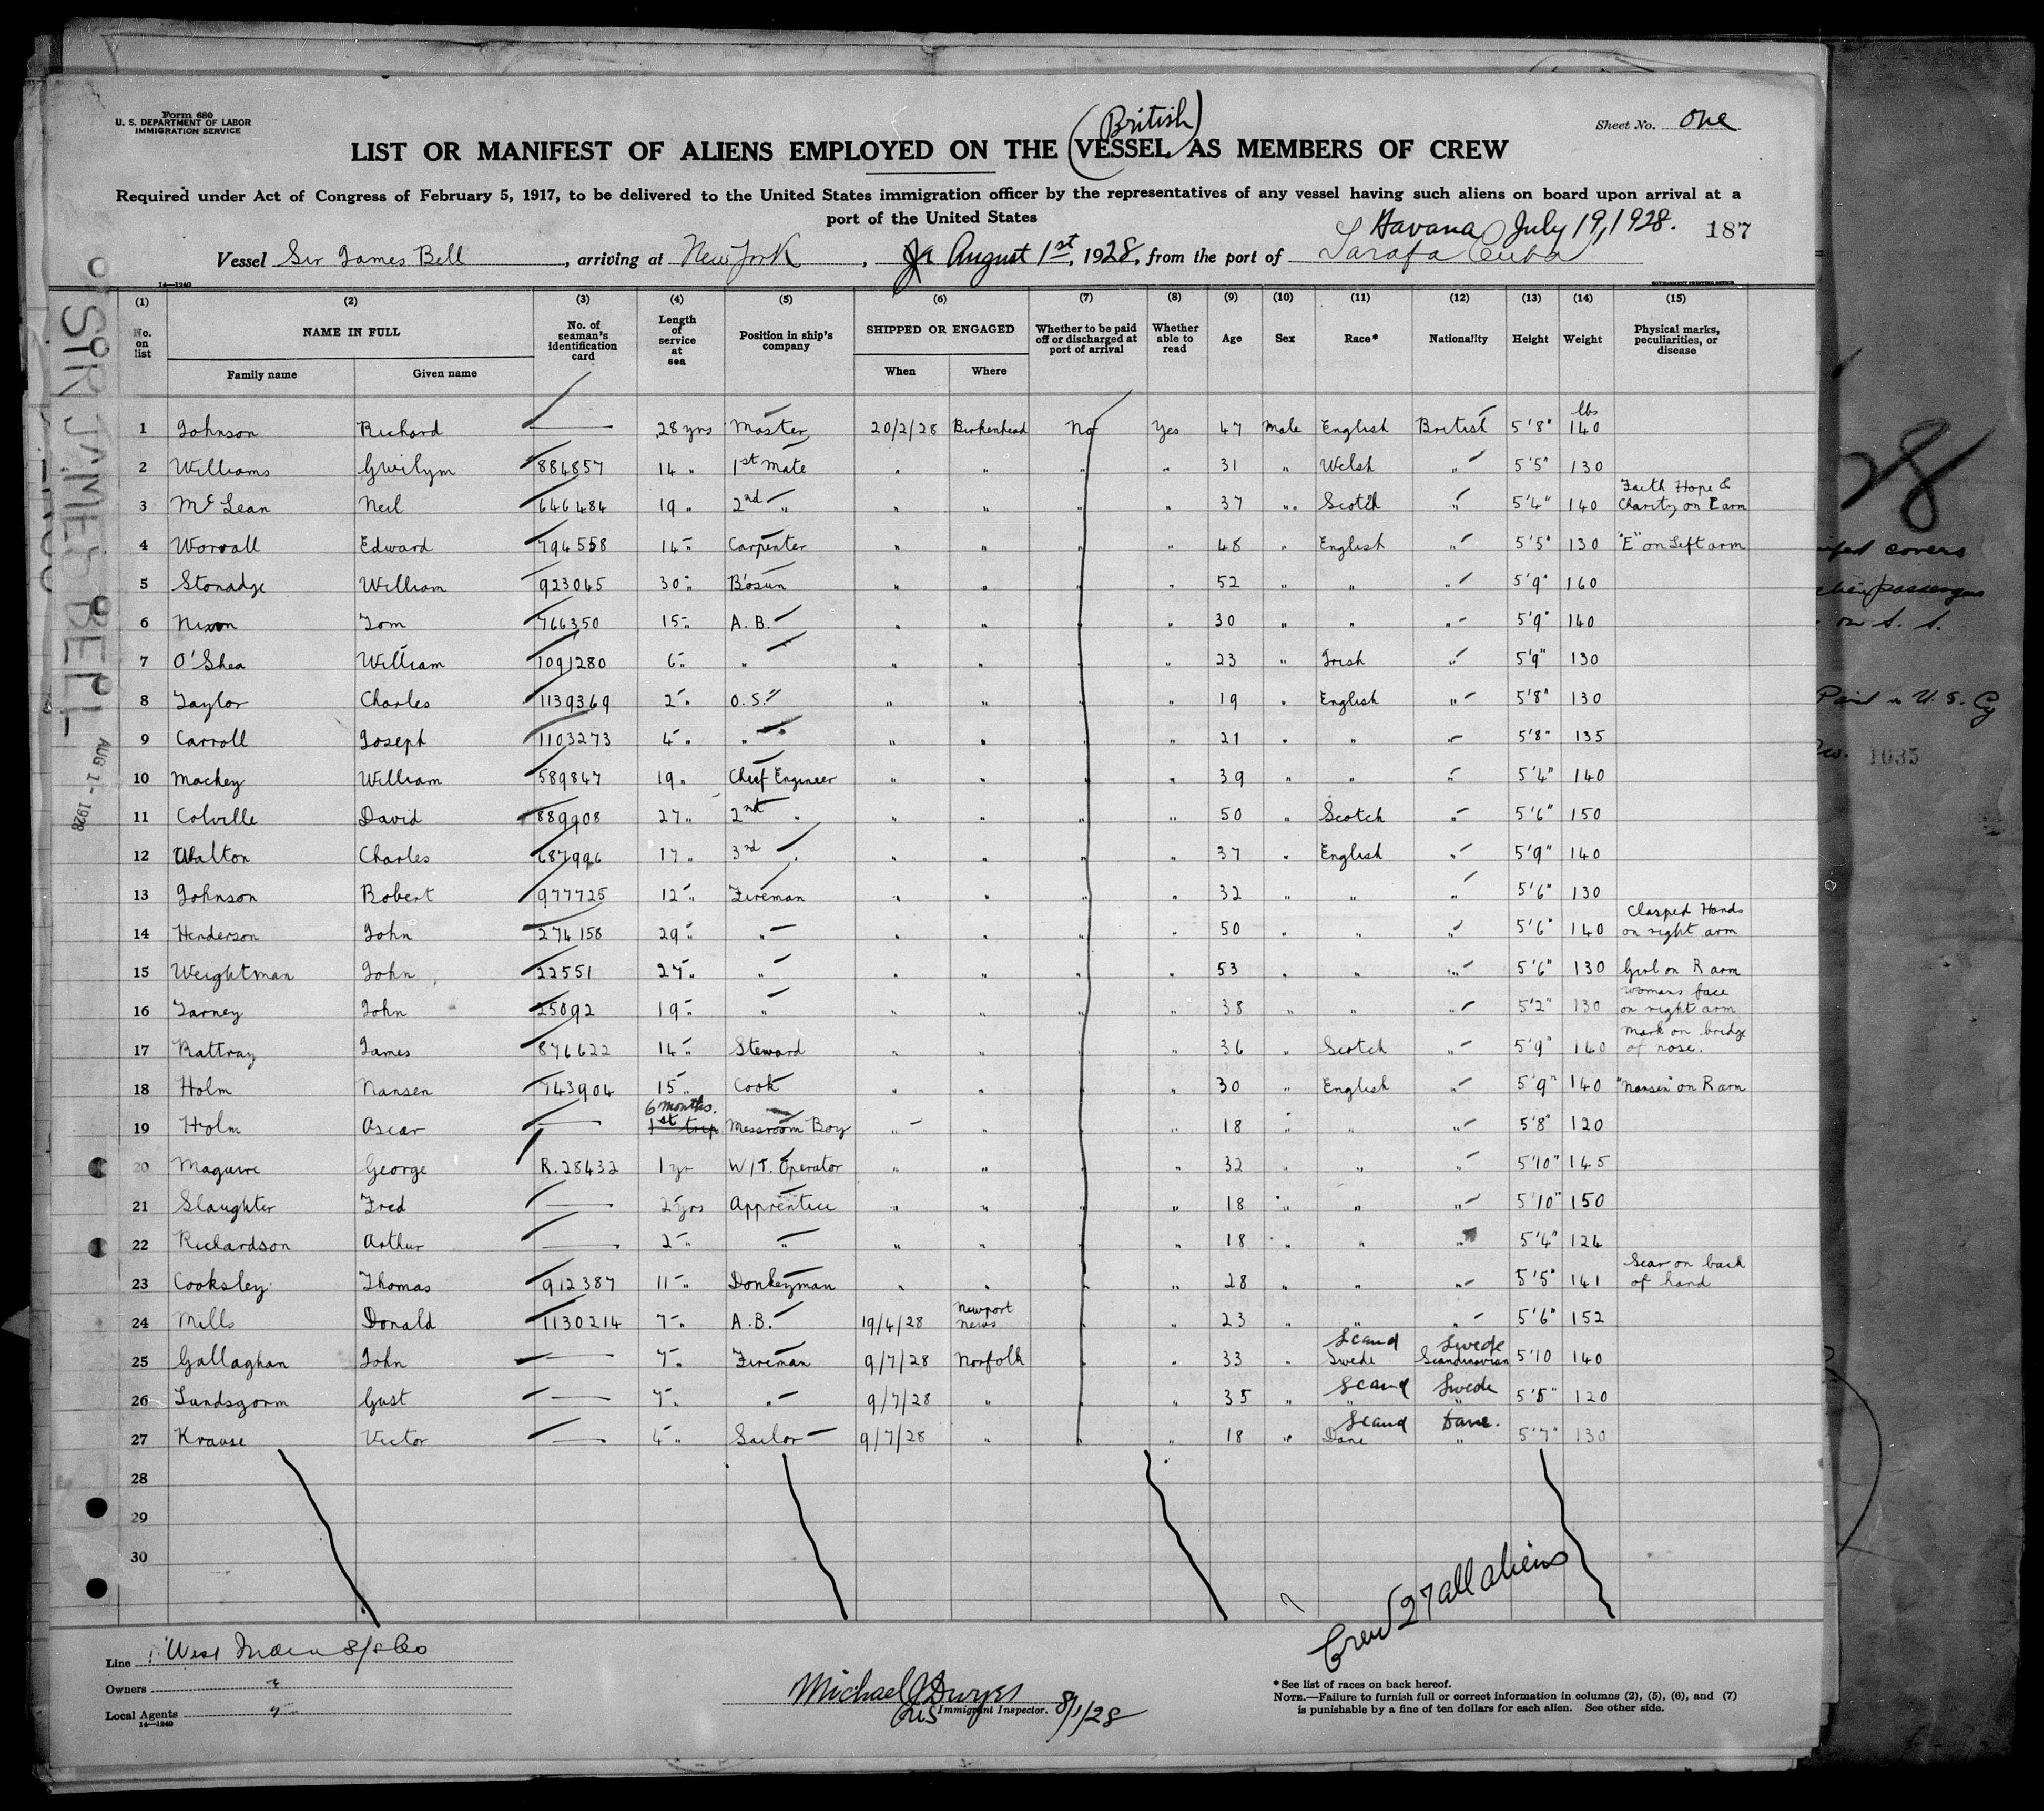 Form 680
U. S. DEPARTMENT OF LABOR
IMMIGRATION SERVICE
Sheet No. One
(British)
LIST OR MANIFEST OF ALIENS EMPLOYED ON THE VESSEL AS MEMBERS OF CREW
Required under Act of Congress of February 5, 1917, to be delivered to the United States immigration officer by the representatives of any vessel having such aliens on board upon arrival at a
port of the United States
Havana July 19, 1928. 187
Vessel Sir James Bell, arriving at New York, August 1st, 1928, from the port of Tarafa Cuba
14—1240
(1) (2) (3) (4) (5) (6) (7) (8) (9) (10) (11) (12) (13) (14) (15)
No. on list NAME IN FULL No. of seaman's identification card Length of service at sea Position in ship's company SHIPPED OR ENGAGED Whether to be paid off or discharged at port of arrival Whether able to read Age Sex Race* Nationality Height Weight Physical marks, peculiarities, or disease
Family name Given name When Where
1 Johnson Richard — 28 yrs Master 20/2/28 Birkenhead No Yes 47 Male English British 5'8" lbs 140
2 Williams Gwilym 884857 14 " 1st Mate " " " " 31 " Welsh " 5'5" 130
3 McLean Neil 646484 19 " 2nd " " " " " 37 " Scotch " 5'4" 140 Faith Hope & Charity on L arm
4 Worrall Edward 794558 14 " Carpenter " " " " 48 " English " 5'5" 130 "E" on Left arm
5 Stonadge William 923045 30 " B'osun " " " " 52 " " " 5'9" 160
6 Nixon Tom 766350 15 " A.B. " " " " 30 " " " 5'9" 140
7 O'Shea William 1091280 6 " " " " " " 23 " Irish " 5'9" 130
8 Taylor Charles 1139369 2 " O.S. " " " " 19 " English " 5'8" 130
9 Carroll Joseph 1103273 4 " " " " " " 21 " " " 5'8" 135
10 Mackey William 589847 19 " Chief Engineer " " " " 39 " " " 5'4" 140
11 Colville David 889908 27 " 2nd " " " " " 50 " Scotch " 5'6" 150
12 Walton Charles 687996 17 " 3rd " " " " " 37 " English " 5'9" 140
13 Johnson Robert 977725 12 " Fireman " " " " 32 " " " 5'6" 130
14 Henderson John 274158 29 " " " " " " 50 " " " 5'6" 140 Clasped Hands on right arm
15 Weightman John 22551 27 " " " " " " 53 " " " 5'6" 130 Girl on R arm
16 Tarney John 25092 19 " " " " " " 38 " " " 5'2" 130 womans face on right arm
17 Rattray James 876622 14 " Steward " " " " 36 " Scotch " 5'9" 140 mark on bridge of nose.
18 Holm Nansen 743904 15 " Cook " " " " 30 " English " 5'9" 140 "Nansen" on R arm
19 Holm Oscar — 6 months. 1st trip Messroom Boy " " " " 18 " " " 5'8" 120
20 Maguire George R.28432 1 yr W/T. Operator " " " " 32 " " " 5'10" 145
21 Slaughter Fred — 2 yrs Apprentice " " " " 18 " " " 5'10" 150
22 Richardson Arthur — 2 " " " " " " 18 " " " 5'4" 124
23 Cooksley Thomas 912387 11 " Donkeyman " " " " 28 " " " 5'5" 141 Scar on back of hand
24 Mills Donald 1130214 7 " A.B. 19/4/28 Newport News " " 23 " " " 5'6" 152
25 Gallaghan John — 7 " Fireman 9/7/28 Norfolk " " 33 " Scand Swede Swede Scandinavian 5'10 140
26 Lundsgorm Gust — 7 " " 9/7/28 " " " 35 " Scand " Swede " 5'5" 120
27 Krause Victor — 4 " Sailor 9/7/28 " " " 18 " Scand Dane Dane. " 5'7" 130
28
29
30
Crew 27 all aliens
Line West India S/S Co
Owners "
Local Agents "
14—1240
Michael J Dwyer
Immigrant Inspector. 8/1/28
*See list of races on back hereof.
NOTE.—Failure to furnish full or correct information in columns (2), (5), (6), and (7)
is punishable by a fine of ten dollars for each alien. See other side.
SIR JAMES BELL
AUG 1 - 1928
28
covers
passengers
on S. S.
Paid in U. S. Cy
No. 1035